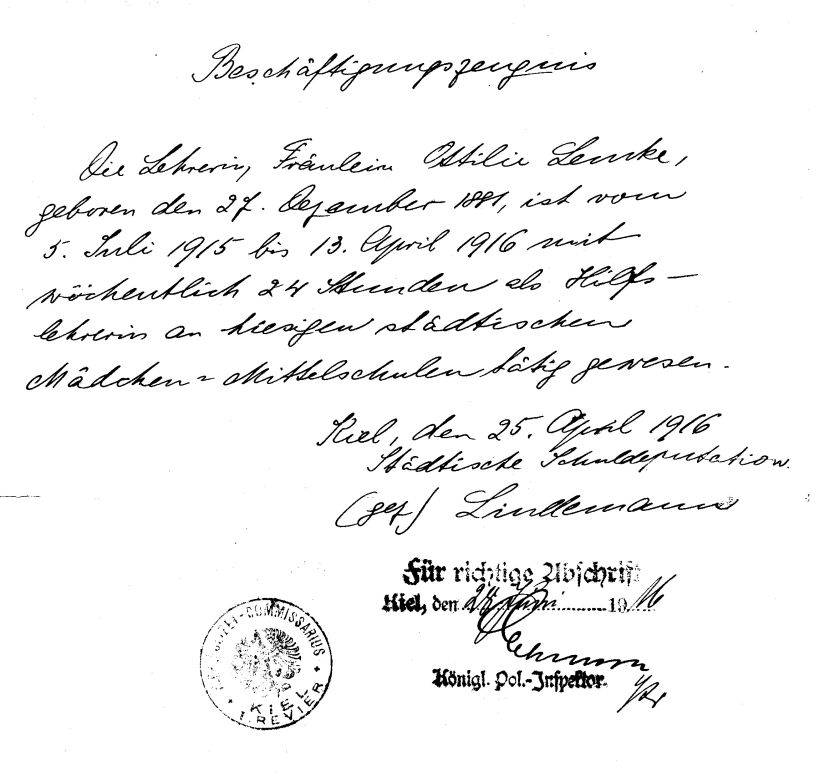 Beschäftigungszeugnis
Die Lehrerin, Fräulein Ottilie Lemke,
geboren den 27. Dezember 1881, ist vom
5. Juli 1915 bis 13. April 1916 mit
wöchentlich 24 Stunden als Hilfs-
lehrerin an hiesigen städtischen
Mädchen=Mittelschulen tätig gewesen.
Kiel, den 25. April 1916
Städtische Schuldeputation.
(gez) Lindemann
Für richtige Abschrift
Kiel, den 24. Juni 1916
Königl. Pol.-Inspektor.
POLIZEI-COMMISSARIUS
KIEL
I. REVIER